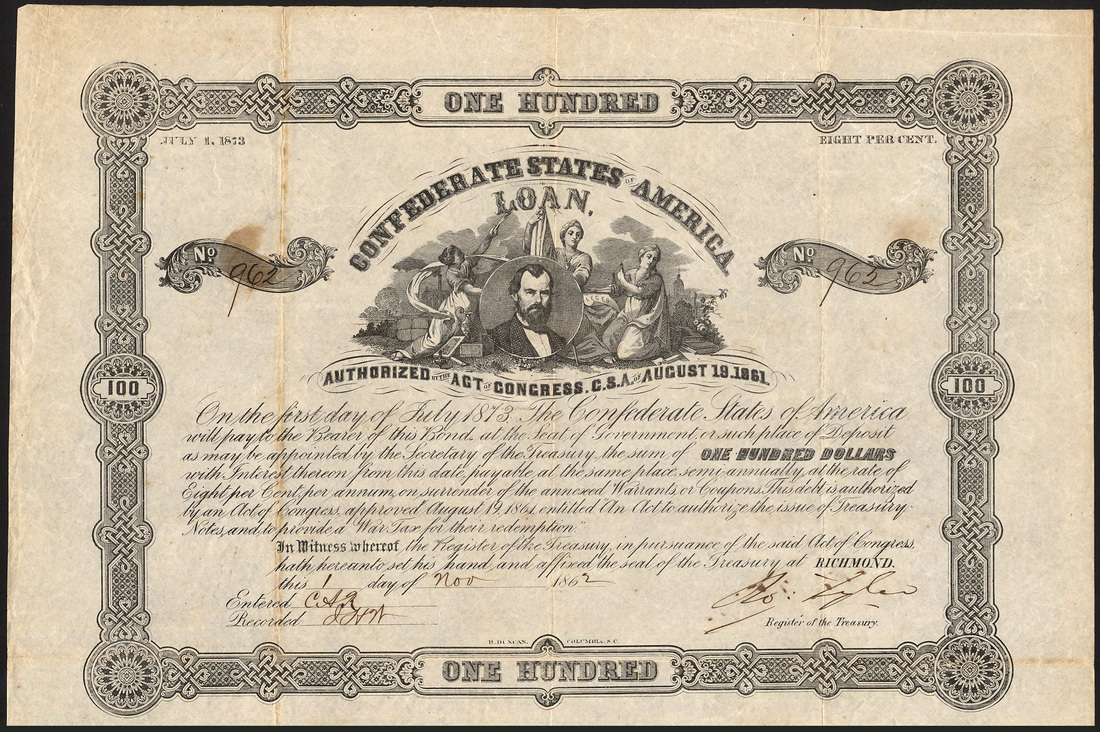 ONE HUNDRED
JULY 1, 1873
EIGHT PER CENT.
CONFEDERATE STATES OF AMERICA
LOAN,
No 962
No 962
100
100
AUTHORIZED BY THE ACT OF CONGRESS. C.S.A. OF AUGUST 19. 1861.
On the first day of July 1873. The Confederate States of America
will pay to the Bearer of this Bond, at the Seat of Government, or such place of Deposit
as may be appointed by the Secretary of the Treasury, the sum of ONE HUNDRED DOLLARS
with Interest thereon from this date, payable at the same place, semi-annually, at the rate of
Eight per Cent, per annum, on surrender of the annexed Warrants, or Coupons. This debt is authorized
by an Act of Congress, approved August 19, 1861, entitled "An Act to authorize the issue of Treasury
Notes, and to provide a War Tax for their redemption."
In Witness whereof, the Register of the Treasury, in pursuance of the said Act of Congress,
hath hereunto set his hand, and affixed the seal of the Treasury at RICHMOND.
this 1 day of Nov 1862
Entered C.A.R
Recorded
Ro: Tyler
Register of the Treasury.
B. DUNCAN, COLUMBIA, S.C.
ONE HUNDRED